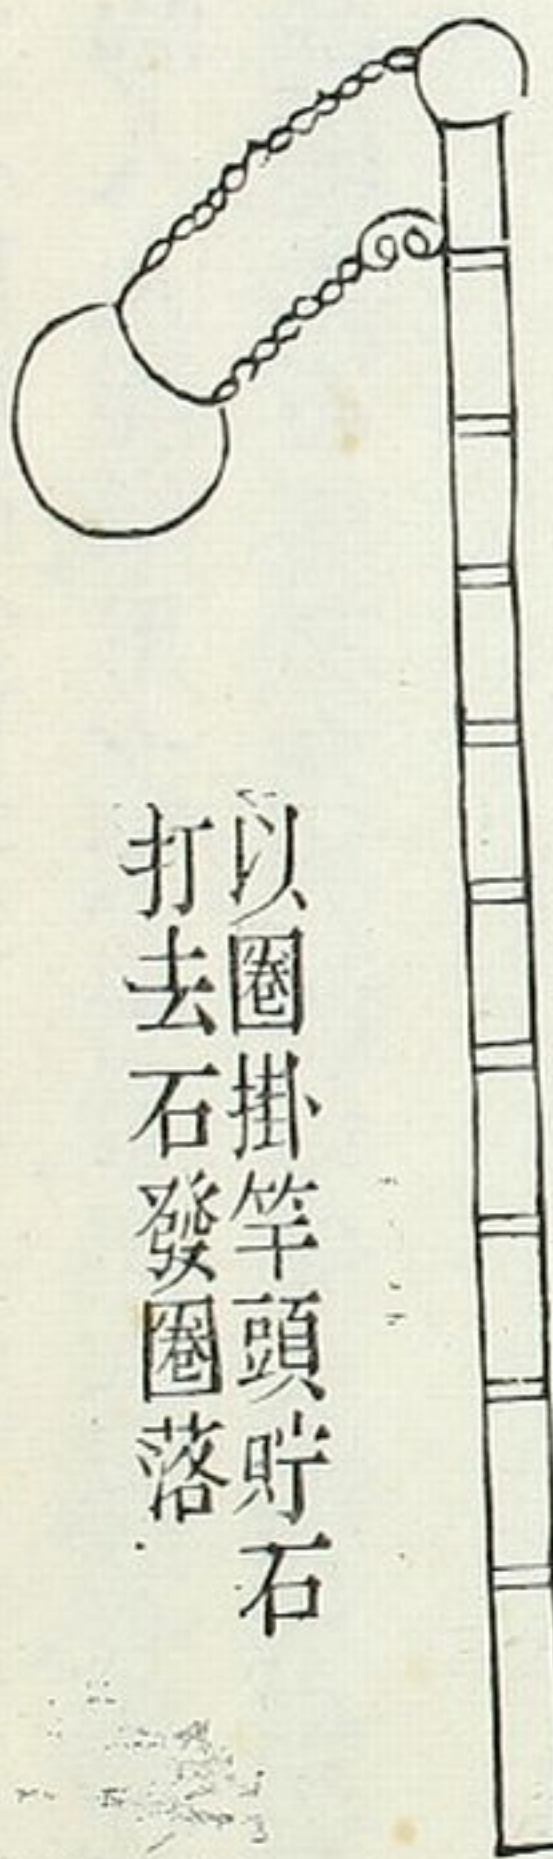 以圈掛竿頭貯石
打去石發圈落